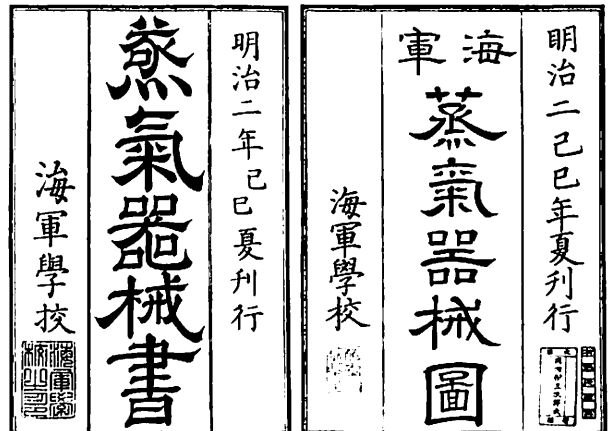 明治二己巳年夏刊行
海軍
蒸氣器械圖
海軍學校
明治二年己巳夏刊行
蒸氣器械書
海軍學校
海軍學校之印